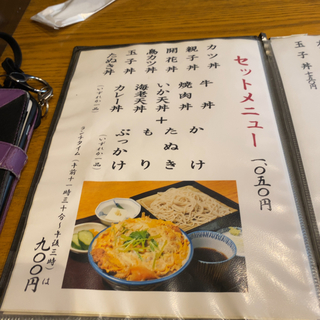 セットメニュー
一〇五〇円
カツ丼
親子丼
開花丼
鳥カツ丼
玉子丼
たぬき丼
牛丼
焼肉丼
いか天丼
海老天丼
カレー丼
(いずれか一品)
+
かけ
たぬき
もり
ぶっかけ
(いずれか一品)
ランチタイム(午前十一時三十分～午後三時)は
九〇〇円
玉子丼